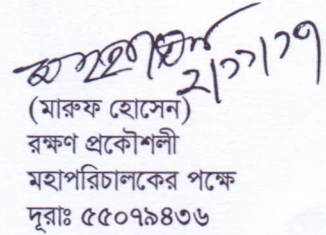 ২/১১/১৭
(মারুফ হোসেন)
রক্ষণ প্রকৌশলী
মহাপরিচালকের পক্ষে
দূরাঃ ৫৫০৭৯৪৩৬